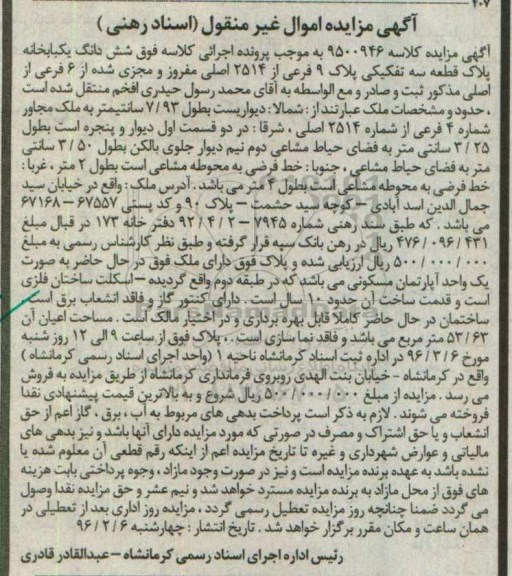 ۴۰۷
آگهی مزایده اموال غیر منقول (اسناد رهنی)
آگهی مزایده کلاسه ۹۵۰۰۹۴۶ به موجب پرونده اجرائی کلاسه فوق شش دانگ یکبابخانه
پلاک قطعه سه تفکیکی پلاک ۹ فرعی از ۲۵۱۴ اصلی مفروز و مجزی شده از ۶ فرعی از
اصلی مذکور ثبت و صادر و مع الواسطه به آقای محمد رسول حیدری افخم منتقل شده است
، حدود و مشخصات ملک عبارتند از : شمالا : دیواریست بطول ۷/۹۳ سانتیمتر به ملک مجاور
شماره ۴ فرعی از شماره ۲۵۱۴ اصلی ، شرقا : در دو قسمت اول دیوار و پنجره است بطول
۳/۲۵ سانتی متر به فضای حیاط مشاعی دوم نیم دیوار جلوی بالکن بطول ۳/۵۰ سانتی
متر به فضای حیاط مشاعی ، جنوبا : خط فرضی به محوطه مشاعی است بطول ۲ متر ، غربا :
خط فرضی به محوطه مشاعی است بطول ۴ متر می باشد . آدرس ملک : واقع در خیابان سید
جمال الدین اسد آبادی – کوچه سید حشمت – پلاک ۹۰ و کد پستی ۶۷۵۵۷ – ۶۷۱۶۸
می باشد . که طبق سند رهنی شماره ۷۹۴۵ – ۹۲/۴/۲ دفتر خانه ۱۷۳ در قبال مبلغ
۴۷۶/۰۹۶/۴۳۱ ریال در رهن بانک سپه قرار گرفته و طبق نظر کارشناس رسمی به مبلغ
۵۰۰/۰۰۰/۰۰۰ ریال ارزیابی شده و پلاک فوق دارای ملک فوق در حال حاضر به صورت
یک واحد آپارتمان مسکونی می باشد که در طبقه دوم واقع گردیده – اسکلت ساختان فلزی
است و قدمت ساخت آن حدود ۱۰ سال است . دارای کنتور گاز و فاقد انشعاب برق است
ساختمان در حال حاضر کاملا قابل بهره برداری و در اختیار مالک است . مساحت اعیان آن
۵۳/۶۳ متر مربع می باشد و فاقد نما سازی است . ، پلاک فوق از ساعت ۹ الی ۱۲ روز شنبه
مورخ ۹۶/۳/۶ در اداره ثبت اسناد کرمانشاه ناحیه ۱ (واحد اجرای اسناد رسمی کرمانشاه )
واقع در کرمانشاه – خیابان بنت الهدی روبروی فرمانداری کرمانشاه از طریق مزایده به فروش
می رسد . مزایده از مبلغ ۵۰۰/۰۰۰/۰۰۰ ریال شروع و به بالاترین قیمت پیشنهادی نقدا
فروخته می شوند . لازم به ذکر است پرداخت بدهی های مربوط به آب ، برق ، گاز اعم از حق
انشعاب و یا حق اشتراک و مصرف در صورتی که مورد مزایده دارای آنها باشد و نیز بدهی های
مالیاتی و عوارض شهرداری و غیره تا تاریخ مزایده اعم از اینکه رقم قطعی آن معلوم شده یا
نشده باشد به عهده برنده مزایده است و نیز در صورت وجود مازاد ، وجوه پرداختی بابت هزینه
های فوق از محل مازاد به برنده مزایده مسترد خواهد شد و نیم عشر و حق مزایده نقدا وصول
می گردد ضمنا چنانچه روز مزایده تعطیل رسمی گردد ، مزایده روز اداری بعد از تعطیلی در
همان ساعت و مکان مقرر برگزار خواهد شد . تاریخ انتشار : چهارشنبه ۹۶/۲/۶
رئیس اداره اجرای اسناد رسمی کرمانشاه – عبدالقادر قادری